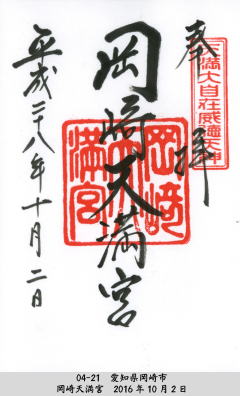 奉拝
天満大自在威徳天神
岡崎天満宮
岡崎天満宮
平成二十八年十月二日
04-21 愛知県岡崎市
岡崎天満宮 2016年10月2日